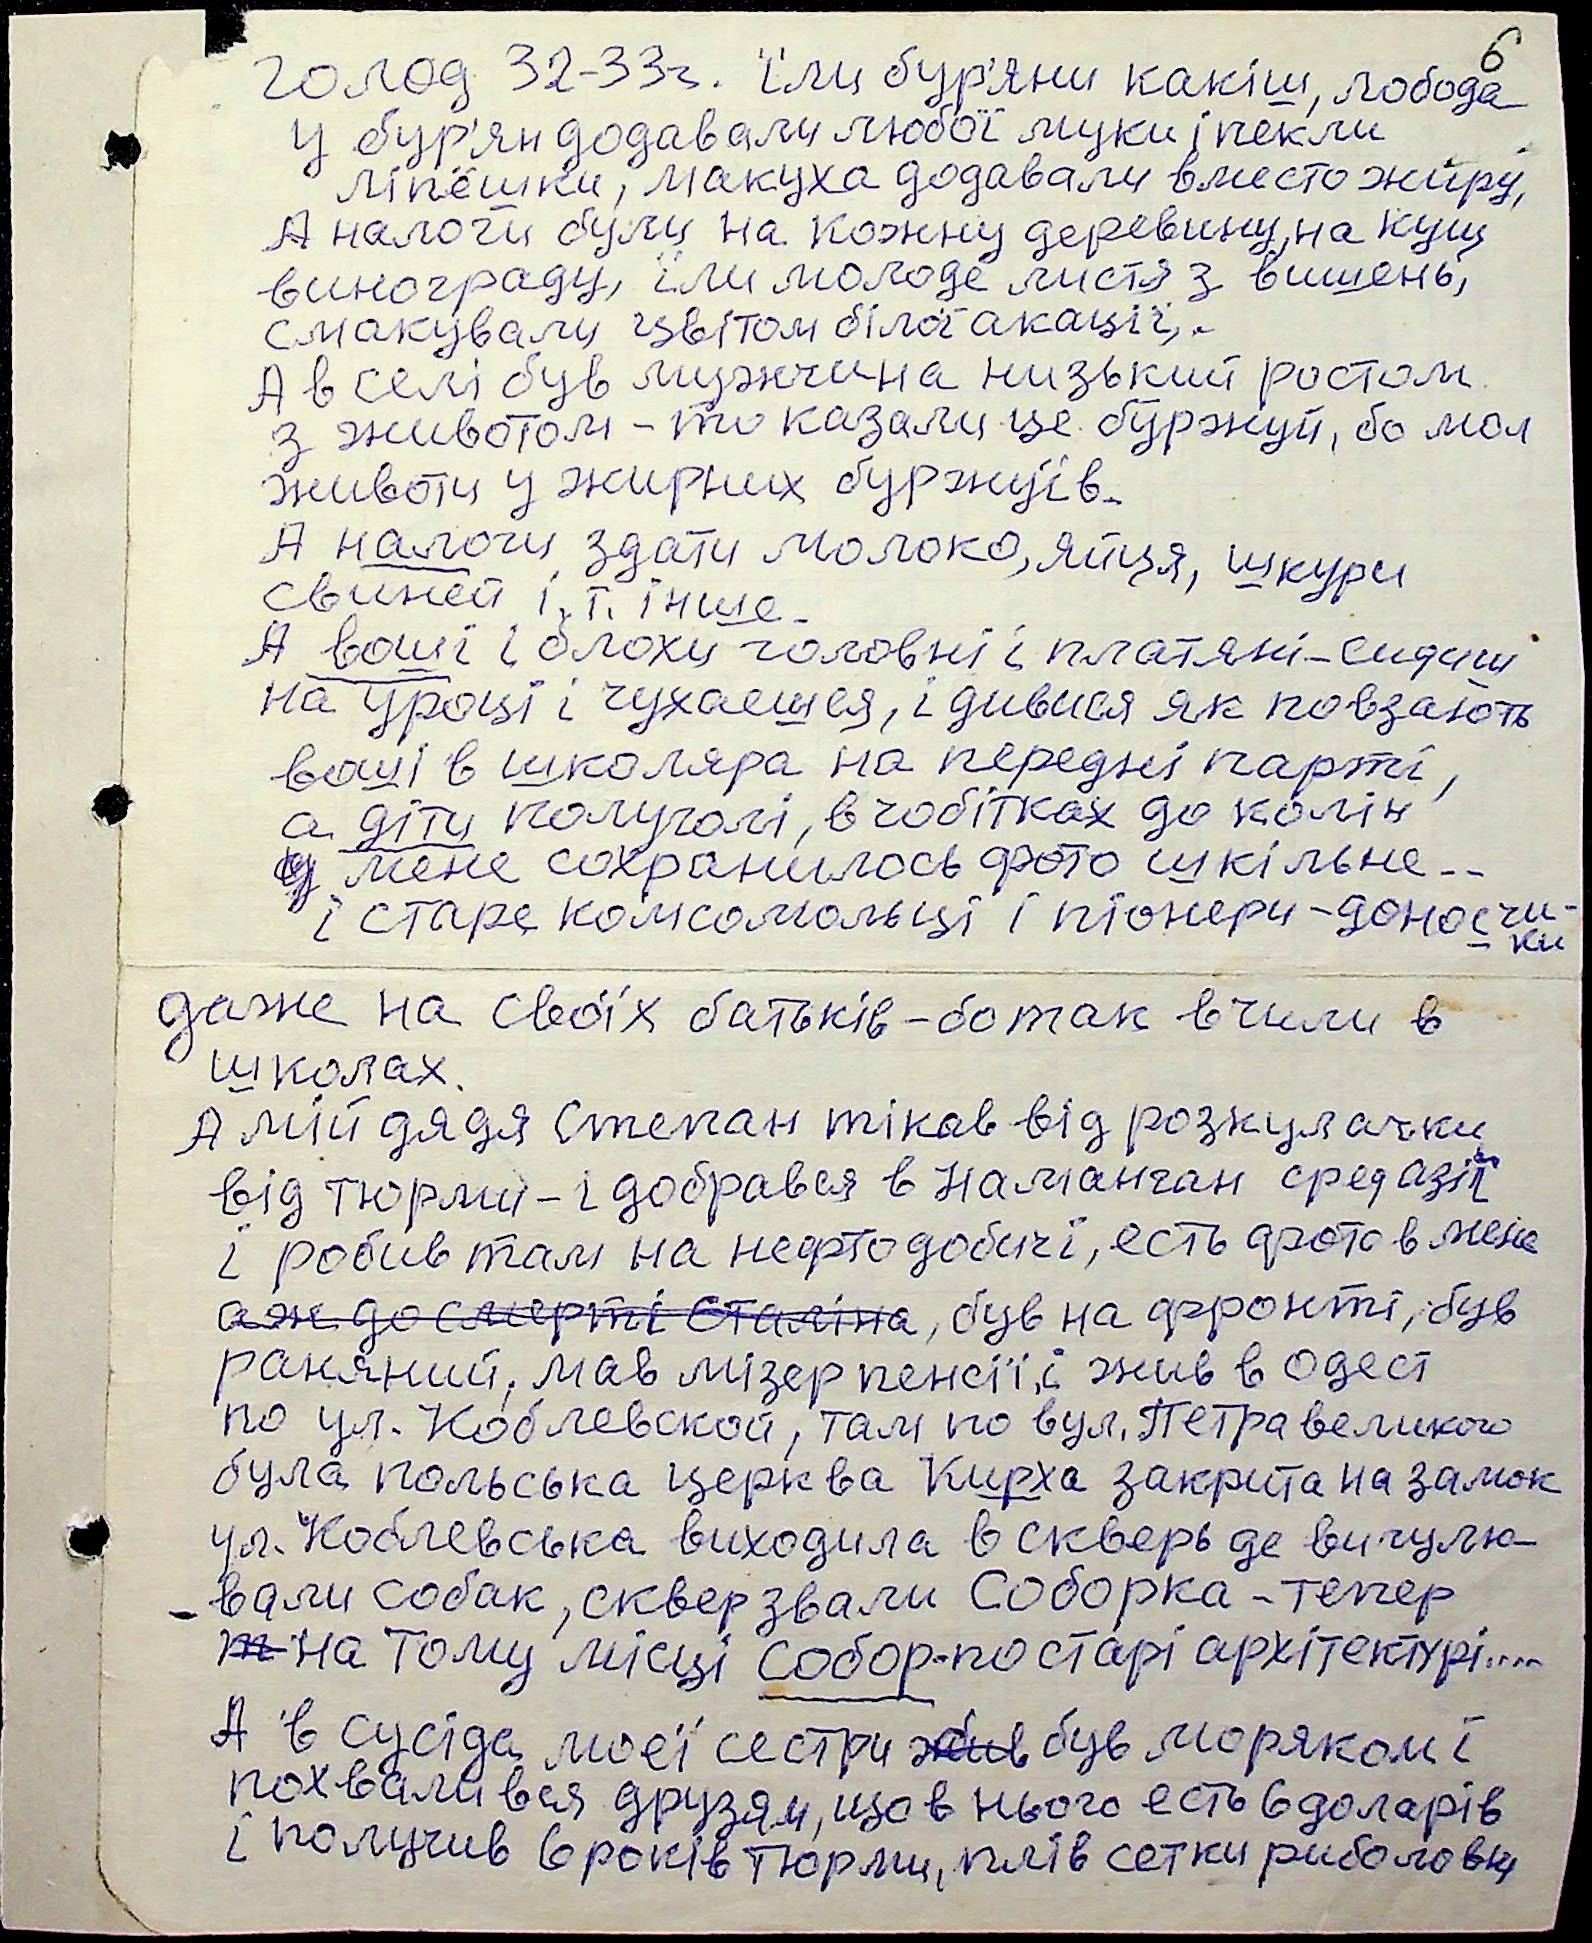 6
голод 32-33г. їли бур'яни какіш, лобода
у бур'ян додавали любої муки і пекли
ліпёшки, макуха додавали вместо жиру,
А налоги були на кожну деревину, на кущ
винограду, їли молоде листя з вишень,
смакували цвітом білої акації,.
А в селі був мужчина низький ростом
з животом - то казали це буржуй, бо мол
животи у жирних буржуїв.
А налоги здати молоко, яйця, шкури
свиней і. т. інше.
А воші і блохи головні і платяні - сидиш
на уроці і чухаешся, і дивися як повзають
воші в школяра на передні парті,
а діти полуголі, в чобітках до колін
у мене сохранилось фото шкільне..
і старе комсомольці і піонери - доносчи-
ки
даже на своїх батьків - бо так вчили в
школах.
А мій дядя Степан тікав від розкулачки
від тюрми - і добрався в Наманган средазії
і робив там на нефтодобичі, есть фото в мене
аж до смерті Сталіна, був на фронті, був
раняний, мав мізер пенсії, і жив в Одесі
по ул. Коблевской, там по вул. Петра великого
була польська церква Кирха закрита на замок
ул. Коблевська виходила в скверь де вигулю-
- вали собак, сквер звали Соборка - тепер
т на тому місці собор - по старі архітектурі....
А в сусіда моеї сестри жив був моряком і
похвалився друзям, що в нього есть 6 доларів
і получив 6 років тюрми, плів сетки риболовні